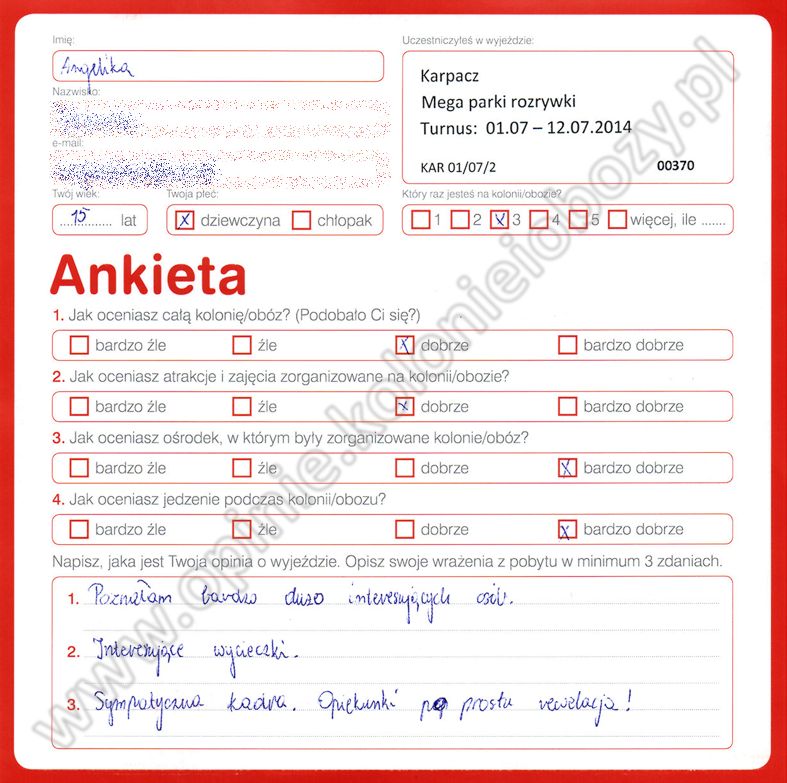 Imię:
Angelika
Nazwisko:
e-mail:
Twój wiek:
15 lat
Twoja płeć:
x dziewczyna chłopak
Uczestniczyłeś w wyjeździe:
Karpacz
Mega parki rozrywki
Turnus: 01.07 – 12.07.2014
KAR 01/07/2 00370
Który raz jesteś na kolonii/obozie?
1 2 x 3 4 5 więcej, ile .......
Ankieta
1. Jak oceniasz całą kolonię/obóz? (Podobało Ci się?)
bardzo źle źle x dobrze bardzo dobrze
2. Jak oceniasz atrakcje i zajęcia zorganizowane na kolonii/obozie?
bardzo źle źle x dobrze bardzo dobrze
3. Jak oceniasz ośrodek, w którym były zorganizowane kolonie/obóz?
bardzo źle źle dobrze x bardzo dobrze
4. Jak oceniasz jedzenie podczas kolonii/obozu?
bardzo źle źle dobrze x bardzo dobrze
Napisz, jaka jest Twoja opinia o wyjeździe. Opisz swoje wrażenia z pobytu w minimum 3 zdaniach.
1. Poznałam bardzo dużo interesujących osób.
2. Interesujące wycieczki.
3. Sympatyczna kadra. Opiekunki po prostu rewelacja!
www.opinie.kolonieiobozy.pl